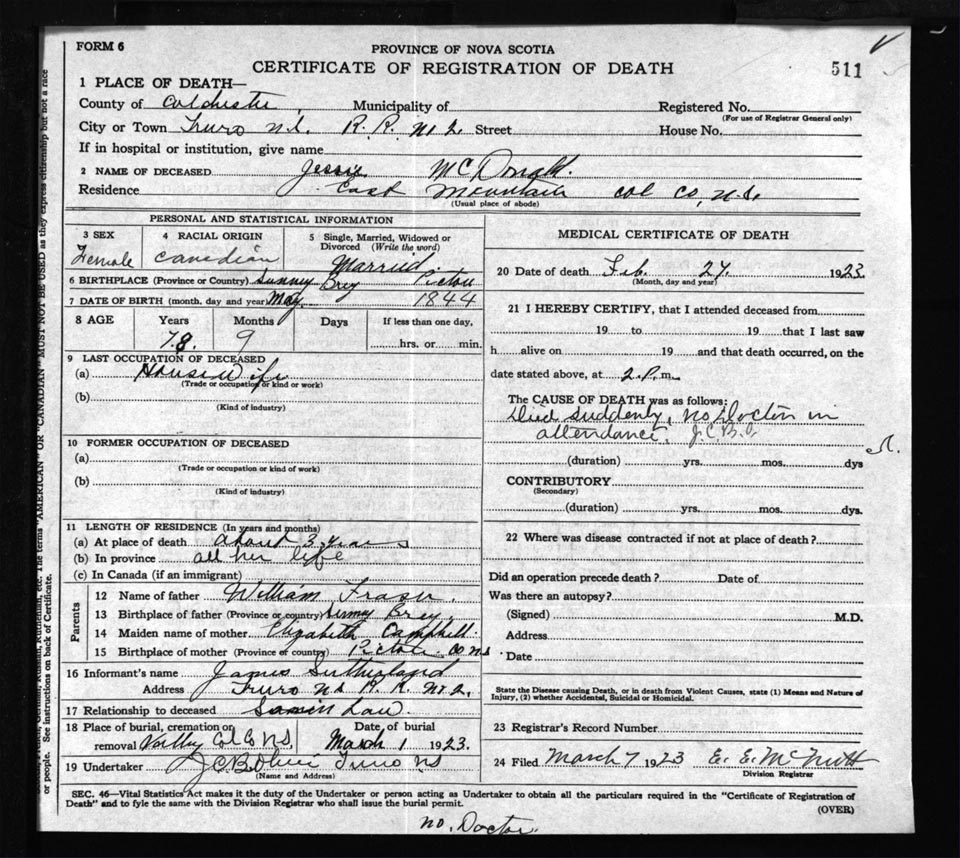 FORM 6
PROVINCE OF NOVA SCOTIA
CERTIFICATE OF REGISTRATION OF DEATH
511
1 PLACE OF DEATH—
County of Colchester Municipality of Registered No.
(For use of Registrar General only)
City or Town Truro N.S. R.R. No 2. Street House No.
If in hospital or institution, give name
2 NAME OF DECEASED Jessie McDonald.
Residence East Mountain Col Co, N.S.
(Usual place of abode)
PERSONAL AND STATISTICAL INFORMATION
3 SEX Female
4 RACIAL ORIGIN Canadian
5 Single, Married, Widowed or Divorced (Write the word) Married.
6 BIRTHPLACE (Province or Country) Sunny Brey Pictou
7 DATE OF BIRTH (month, day and year) May 1844
8 AGE Years Months Days If less than one day,
78. 9 hrs. or min.
9 LAST OCCUPATION OF DECEASED
(a) Housewife
(Trade or occupation or kind or work)
(b)
(Kind of industry)
10 FORMER OCCUPATION OF DECEASED
(a)
(Trade or occupation or kind of work)
(b)
(Kind of industry)
11 LENGTH OF RESIDENCE (In years and months)
(a) At place of death about 3 years
(b) In province all her life
(c) In Canada (if an immigrant)
Parents
12 Name of father William Fraser.
13 Birthplace of father (Province or country) Sunny Brey.
14 Maiden name of mother Elizabeth Campbell.
15 Birthplace of mother (Province or country) Pictou Co NS
16 Informant's name James Sutherland
Address Truro NS R. R. No. 2.
17 Relationship to deceased Son in Law.
18 Place of burial, cremation or removal Valley Col Co N.S.
Date of burial March 1 1923.
19 Undertaker J C B Olive Truro NS
(Name and Address)
MEDICAL CERTIFICATE OF DEATH
20 Date of death Feb. 27. 1923.
(Month, day and year)
21 I HEREBY CERTIFY, that I attended deceased from
19 to 19 that I last saw
h alive on 19 and that death occurred, on the
date stated above, at 2. P. m.
The CAUSE OF DEATH was as follows:
Died suddenly, no Doctor in
attendance. J.C.B.O.
(duration) yrs. mos. dys
CONTRIBUTORY
(Secondary)
(duration) yrs. mos. dys.
22 Where was disease contracted if not at place of death?
Did an operation precede death? Date of
Was there an autopsy?
(Signed) M.D.
Address
Date
State the Disease causing Death, or in death from Violent Causes, state (1) Means and Nature of
Injury, (2) whether Accidental, Suicidal or Homicidal.
23 Registrar's Record Number
24 Filed March 7 1923 E. E. McNutt
Division Registrar
SEC. 46—Vital Statistics Act makes it the duty of the Undertaker or person acting as Undertaker to obtain all the particulars required in the "Certificate of Registration of
Death" and to fyle the same with the Division Registrar who shall issue the burial permit.
(OVER)
no. Doctor.
or people. See instructions on back of Certificate.
etc. The terms "AMERICAN" OR "CANADIAN" MUST NOT BE USED as they express citizenship but not a race